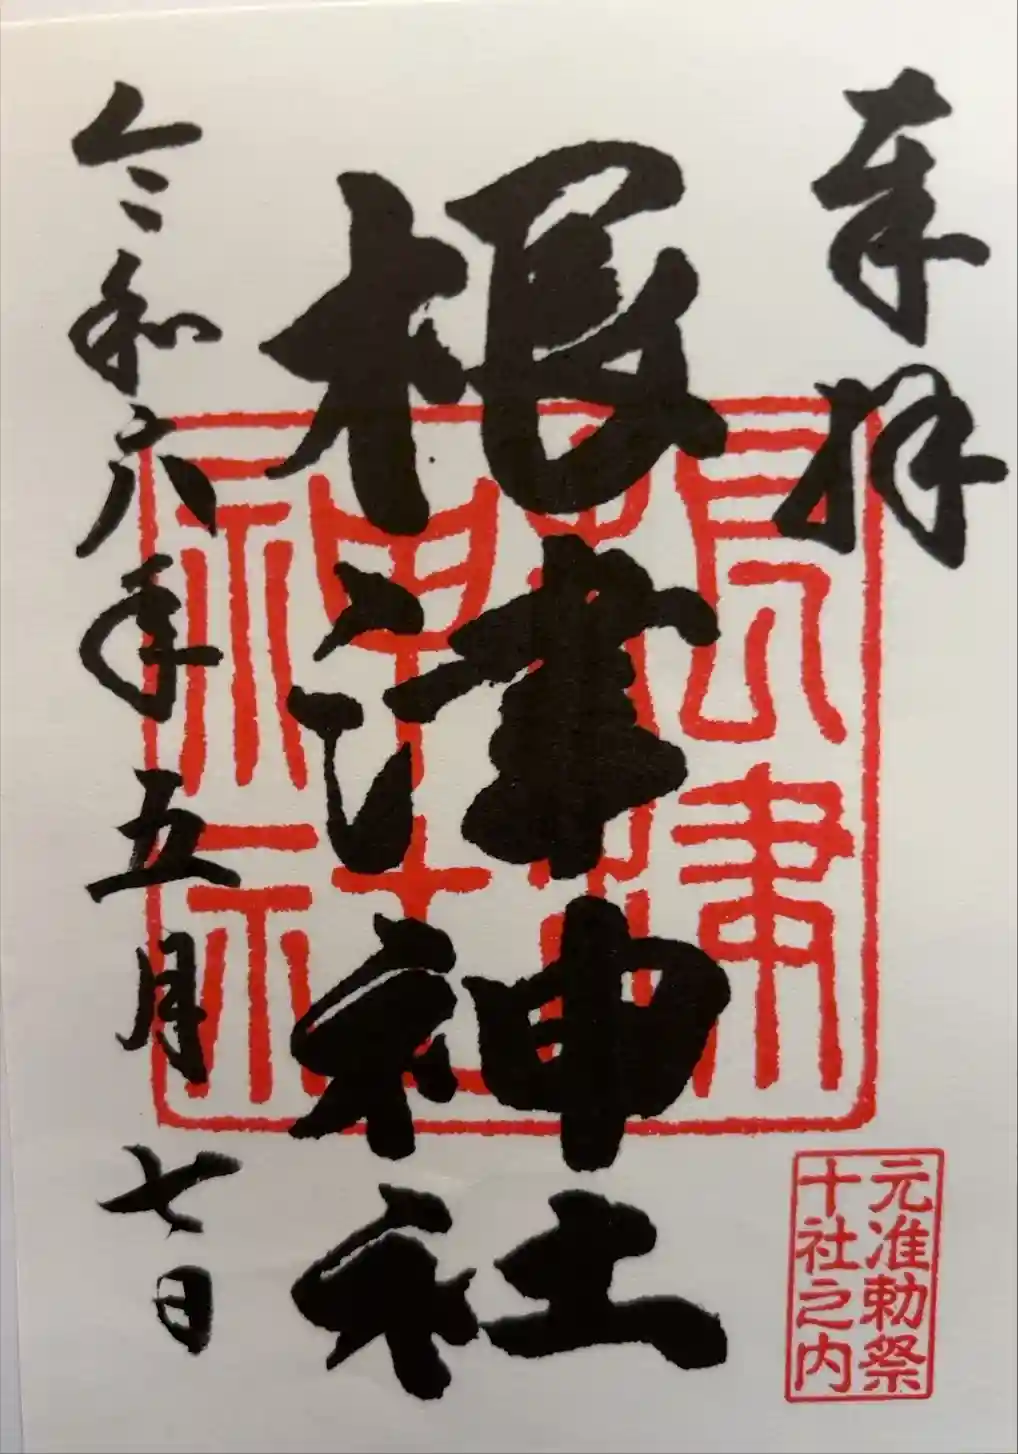 奉拝
根津神社
令和六年五月七日
根津神社
元准勅祭
十社之内